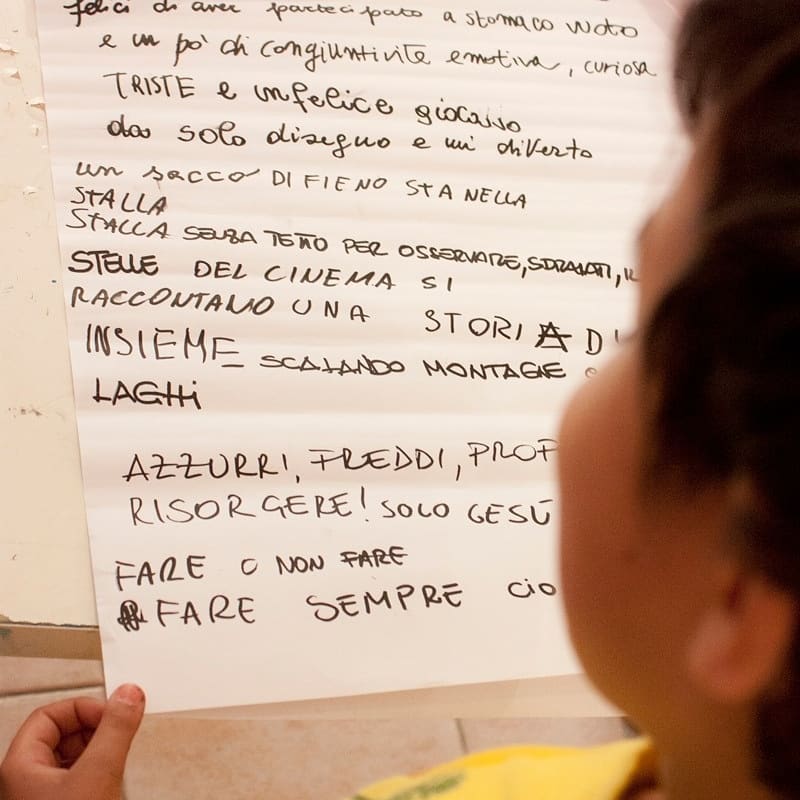 felici di aver partecipato a stomaco vuoto
e un pò di congiuntivite emotiva, curiosa
TRISTE e infelice giocasso
da solo disegno e mi diverto
un sacco DI FIENO STA NELLA
STALLA
STALLA SENZA TETTO PER OSSERVARE, SDRAIATI,
STELLE DEL CINEMA SI
RACCONTANO UNA STORIA DI
INSIEME SCALANDO MONTAGNE
LAGHI
AZZURRI, FREDDI, PROF
RISORGERE! SOLO GESÙ
FARE O NON FARE
FARE SEMPRE CIO